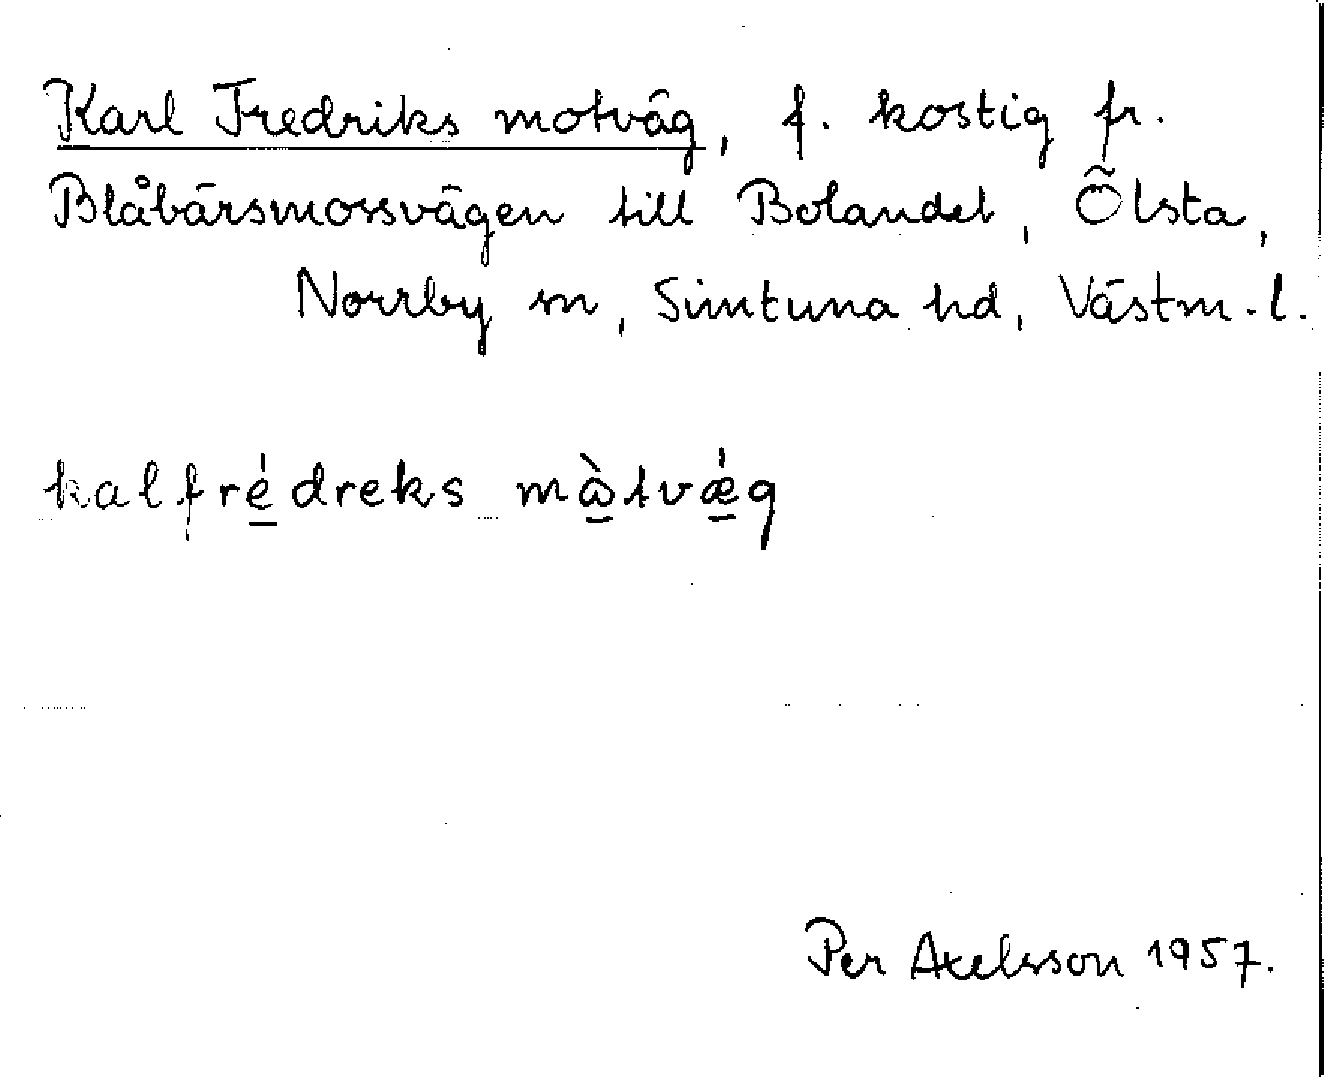 Karl Fredriks motväg, f. kostig fr.
Blåbärsmossvägen till Bolandet, Ölsta,
Norrby sn, Simtuna hd, Västm. l.
kalfré̱dreks mà̱tvǽ̱g
Per Axelsson 1957.